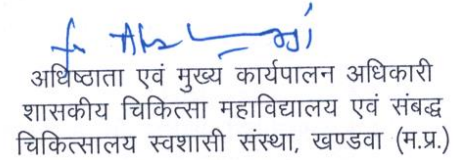 अधिष्ठाता एवं मुख्य कार्यपालन अधिकारी
शासकीय चिकित्सा महाविद्यालय एवं संबद्ध
चिकित्सालय स्वशासी संस्था, खण्डवा (म.प्र.)